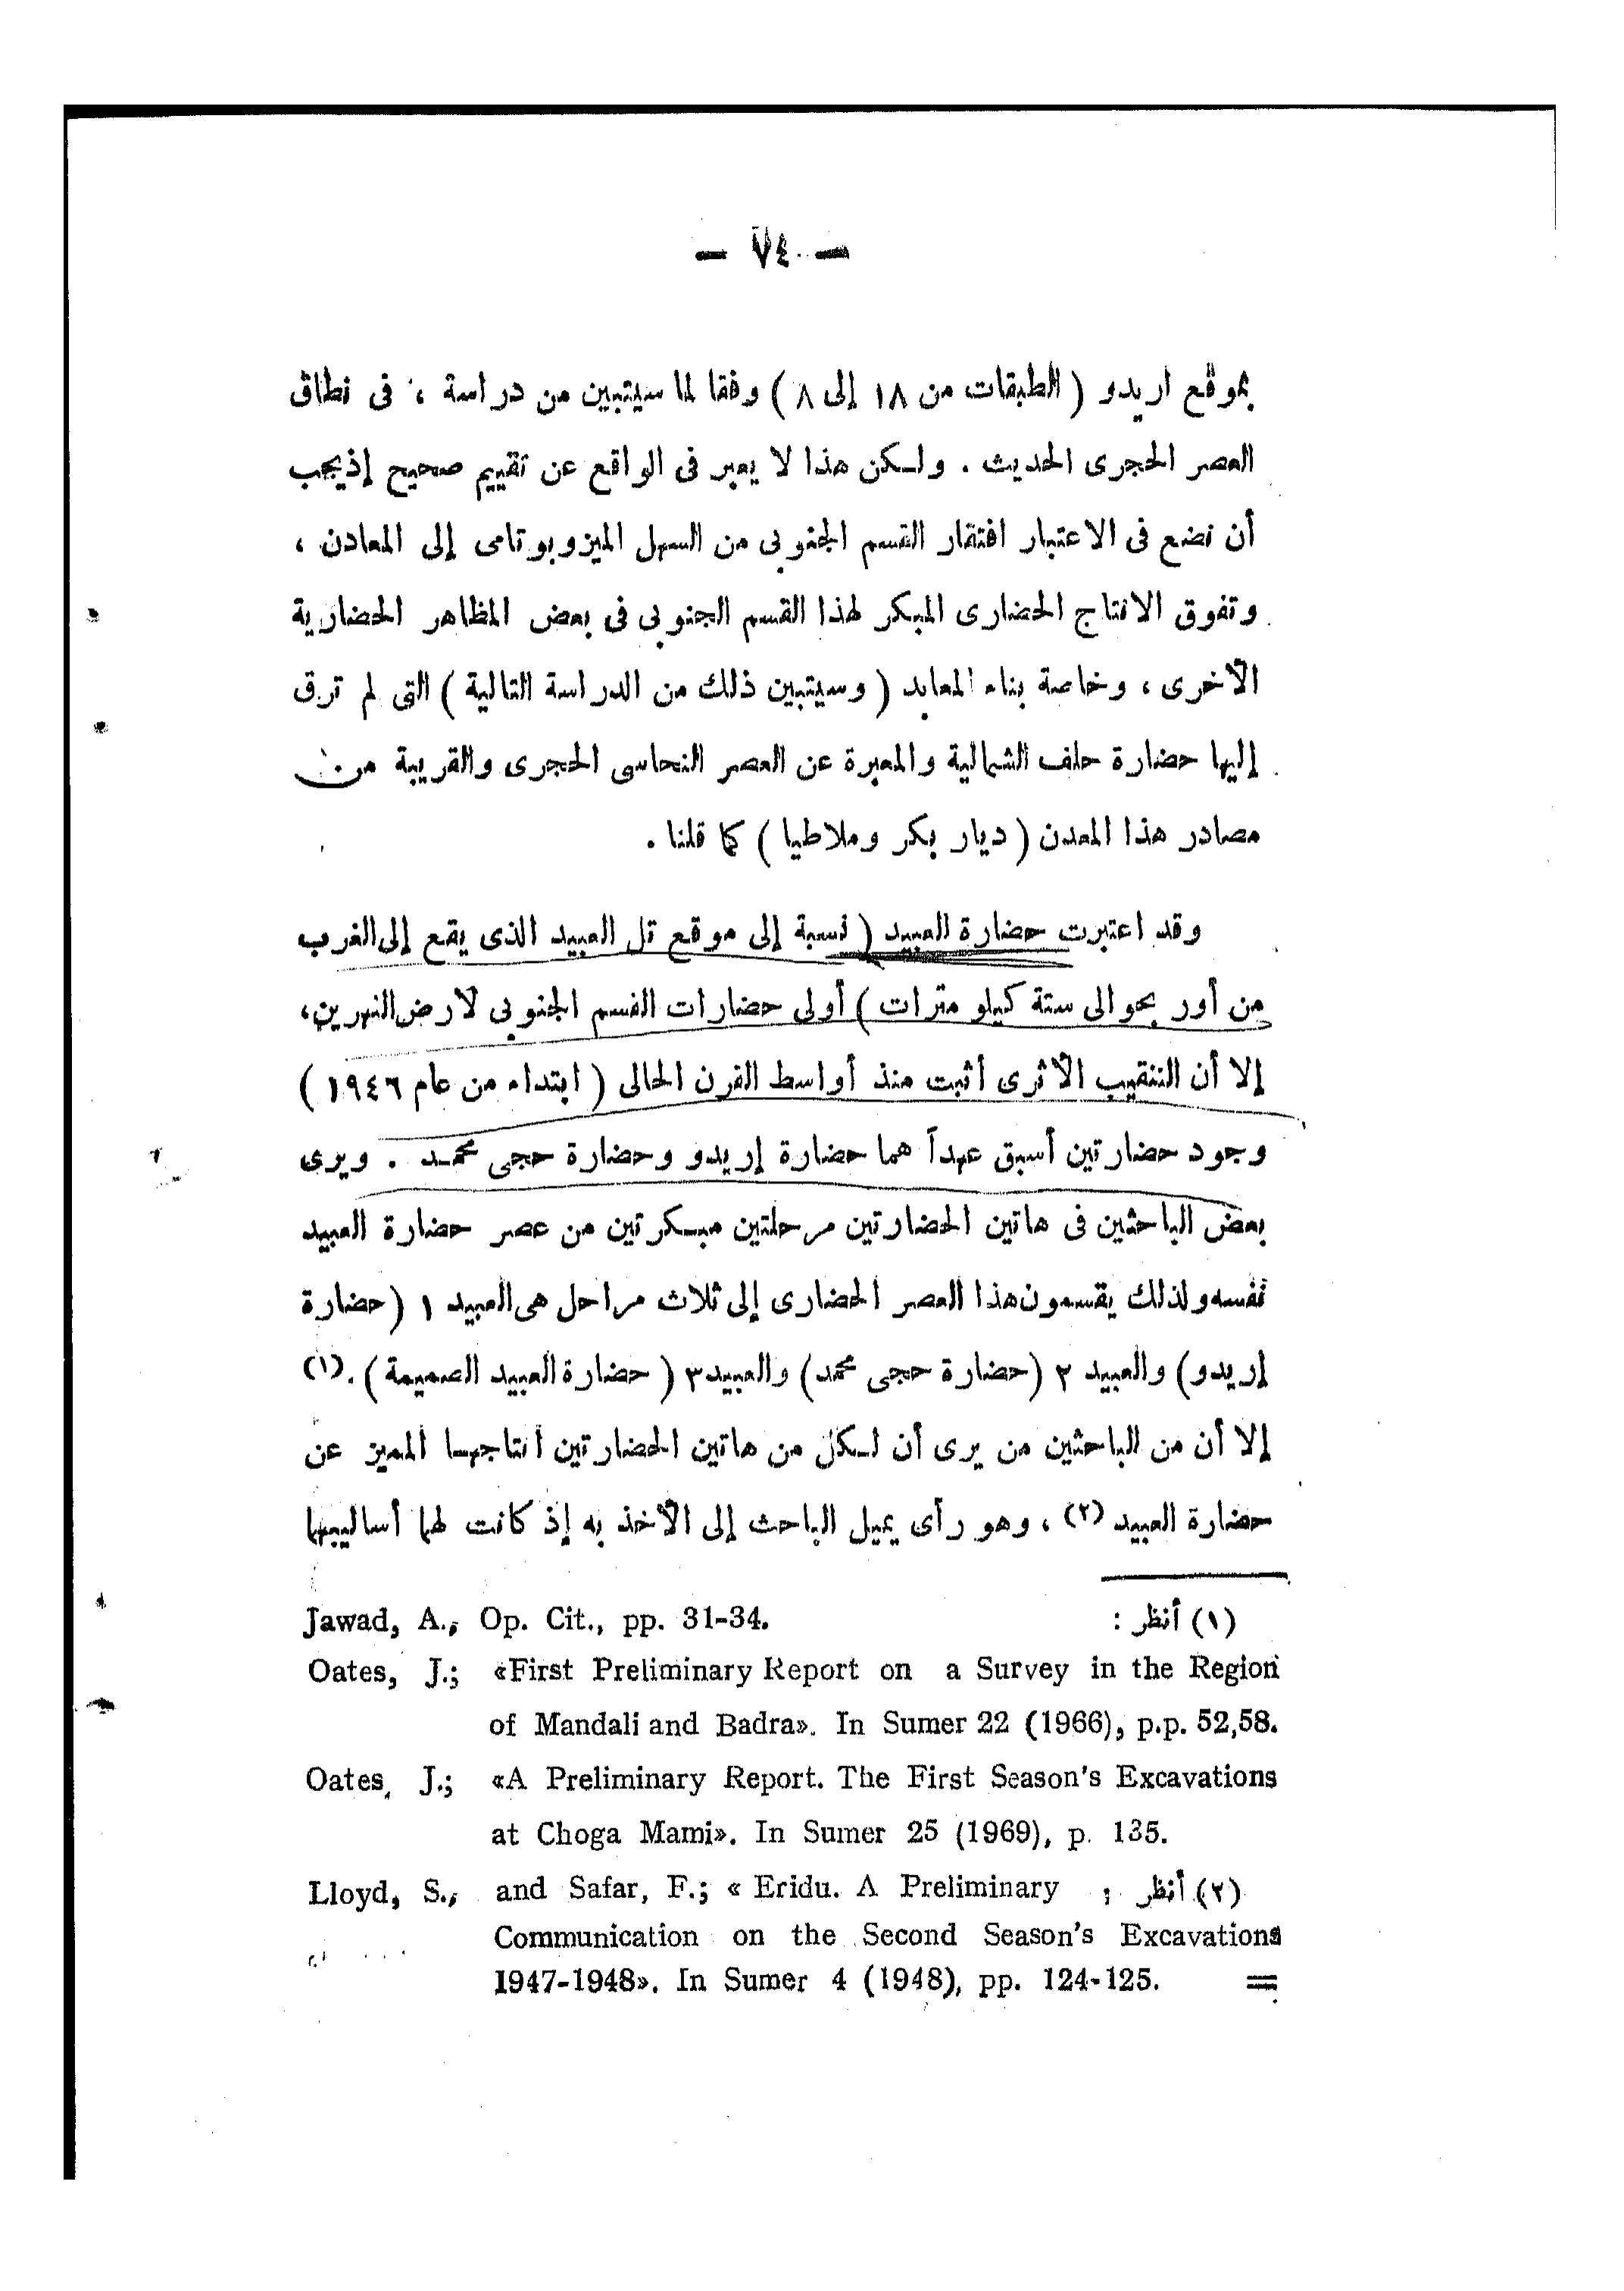 — ٧٤ —
بموقع اريدو ( الطبقات من ١٨ إلى ٨ ) وفقا لما سيتبين من دراسة ، فى نطاق
العصر الحجرى الحديث . ولكن هذا لا يعبر فى الواقع عن تقييم صحيح إذ يجب
أن نضع فى الاعتبار افتقار القسم الجنوبى من السهل الميزوبوتامى إلى المعادن ،
وتفوق الانتاج الحضارى المبكر لهذا القسم الجنوبى فى بعض المظاهر الحضارية
الأخرى ، وخاصة بناء المعابد ( وسيتبين ذلك من الدراسة التالية ) التى لم ترق
إليها حضارة حلف الشمالية والمعبرة عن العصر النحاسى الحجرى والقريبة من
مصادر هذا المعدن ( ديار بكر وملاطيا ) كما قلنا .
وقد اعتبرت حضارة العبيد ( نسبة إلى موقع تل العبيد الذى يقع إلى الغرب
من أور بحوالى ستة كيلو مترات ) أولى حضارات القسم الجنوبى لأرض النهرين ،
إلا أن التنقيب الأثرى أثبت منذ أواسط القرن الحالى ( ابتداء من عام ١٩٤٦ )
وجود حضارتين أسبق عهداً هما حضارة إريدو وحضارة حجى محمد . ويرى
بعض الباحثين فى هاتين الحضارتين مرحلتين مبكرتين من عصر حضارة العبيد
نفسه ولذلك يقسمون هذا العصر الحضارى إلى ثلاث مراحل هى العبيد ١ ( حضارة
إريدو ) والعبيد ٢ ( حضارة حجى محمد ) والعبيد ٣ ( حضارة العبيد الصميمة ) . (١)
إلا أن من الباحثين من يرى أن لكل من هاتين الحضارتين انتاجهما المميز عن
حضارة العبيد (٢) ، وهو رأى يميل الباحث إلى الأخذ به إذ كانت لهما أساليبهما
(١) أنظر : Jawad, A., Op. Cit., pp. 31-34.
Oates, J.; «First Preliminary Report on a Survey in the Region
of Mandali and Badra». In Sumer 22 (1966), p.p. 52,58.
Oates, J.; «A Preliminary Report. The First Season's Excavations
at Choga Mami». In Sumer 25 (1969), p. 135.
(٢) أنظر : Lloyd, S., and Safar, F.; « Eridu. A Preliminary
Communication on the Second Season's Excavations
1947-1948». In Sumer 4 (1948), pp. 124-125. =